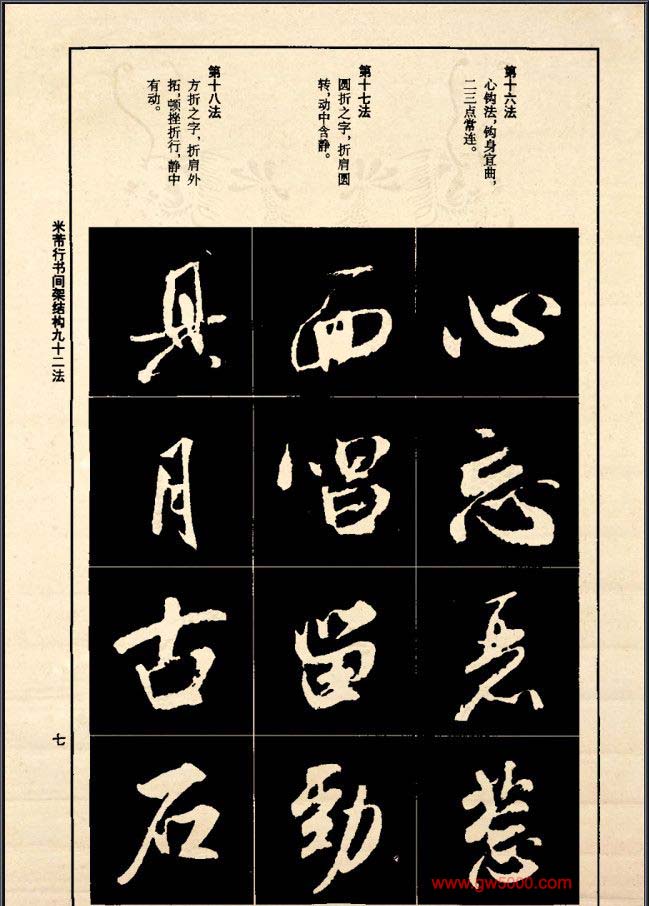 第十六法
心钩法，钩身宜曲，
二三点常连。
心
忘
第十七法
圆折之字，折肩圆
转，动中含静。
而
唱
留
劲
第十八法
方折之字，折肩外
拓，顿挫折行，静中
有动。
具
月
古
石
米芾行书间架结构九十二法
七
www.gw5000.com